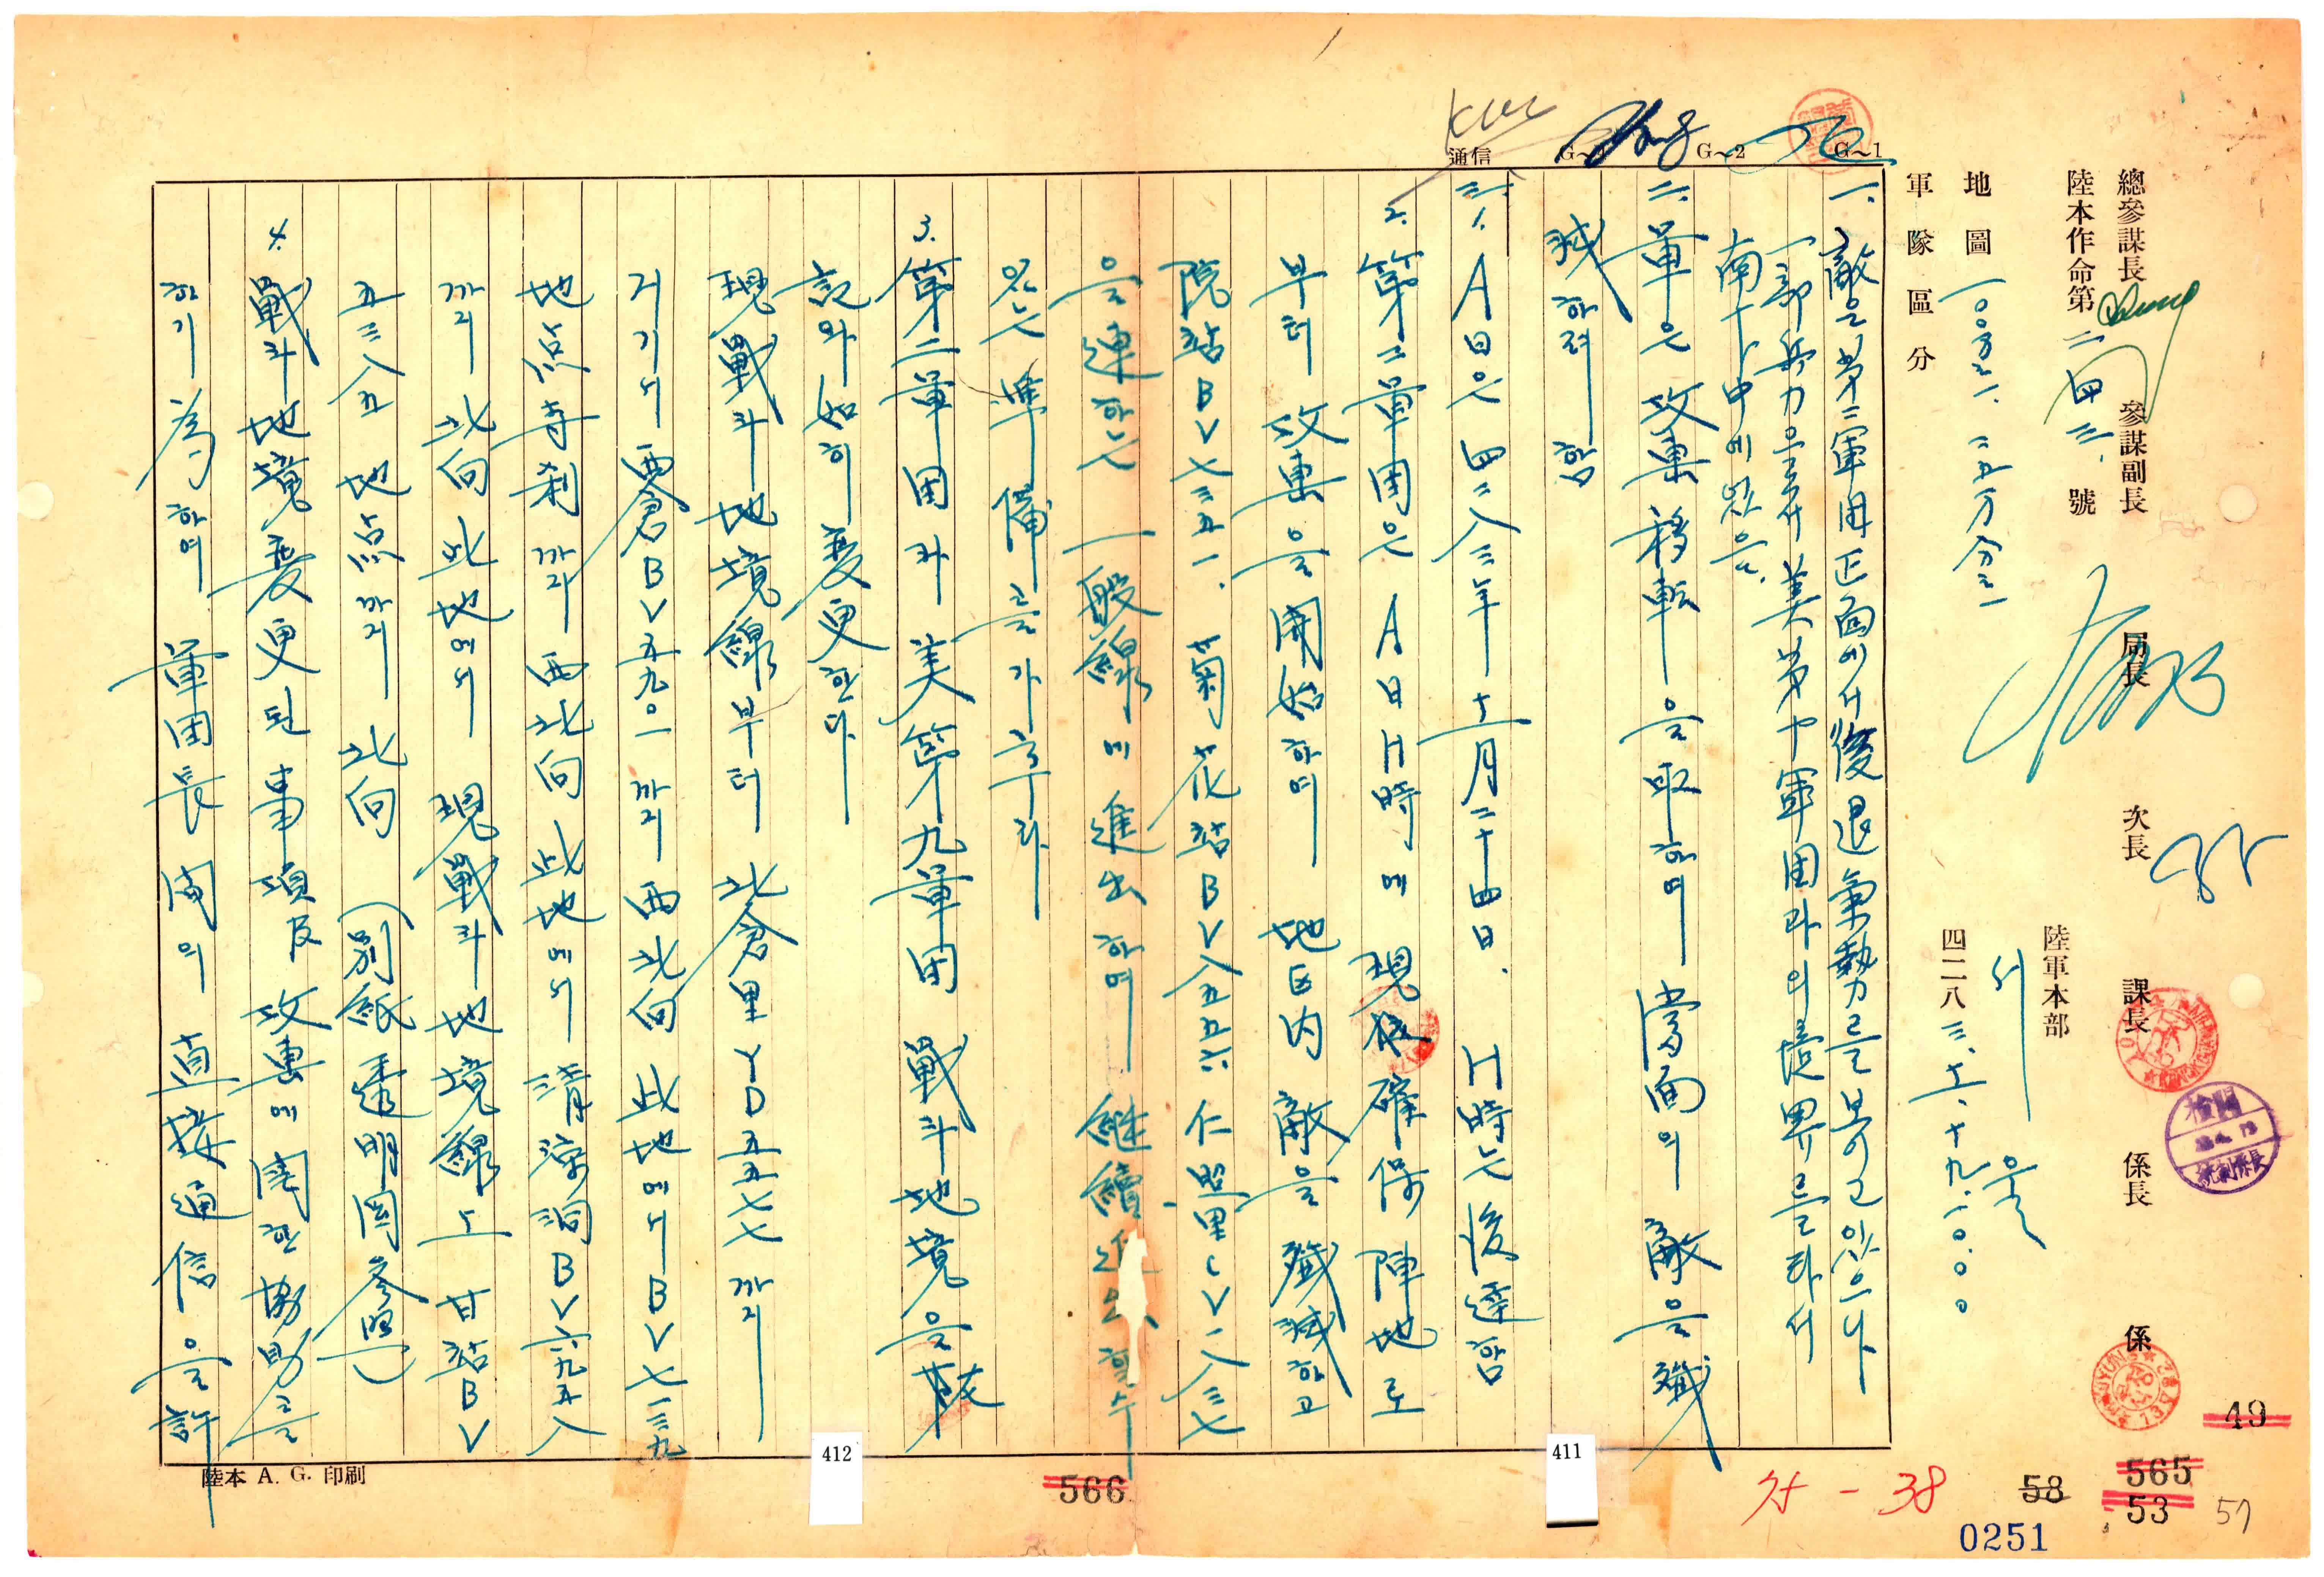 總參謀長 參謀副長 局長 次長 課長 係長 係
陸本作命第 二四三 號
陸軍本部
서울
四二八三.十一.十九.一〇.〇〇
地圖 一〇〇万之一. 二五万分之一
軍隊區分
通信 G~2 G~1
一. 敵은 第二軍団 正面에서 後退 氣勢를 보이고 있으나
一部 兵力으로서 美第十軍団과의 境界를 타서
南下中에 있음.
二. 軍은 攻擊移転을 取하여 當面의 敵을 殲
滅하려 함
三. 1. A日은 四二八三年 十一月二十四日. H時는 後達함
2. 第二軍団은 A日 H時에 現在 確保 陣地로
부터 攻擊을 開始하여 地区内 敵을 殲滅하고
院站 BV七三五一. 菊花站 BV八五五六 仁興里 CV二八三七
을 連하는 一般線에 進出하여 継續
있는 準備를 가추라
3. 第二軍団과 美第九軍団 戰斗地境을
記와 如히 変更한다
現戰斗地境線부터 北倉里 YD五五七七까지
거기서 西倉 BV五九〇一까지 西北向 此地에서 BV七一三九
地点 寺刹까지 西北向 此地에서 清涼洞 BV六九五八
까지 北向 此地에서 現戰斗地境線上 甘站 BV
五三八五 地点까지 北向 (別紙 透明図 參照)
4. 戰斗地境 変更된 事項 及 攻擊에 関한 協助를
하기 為하여 軍団長 間의 直接 通信을 許
陸本 A. G. 印刷
412
411
566
38
49
565
58
53
57
0251